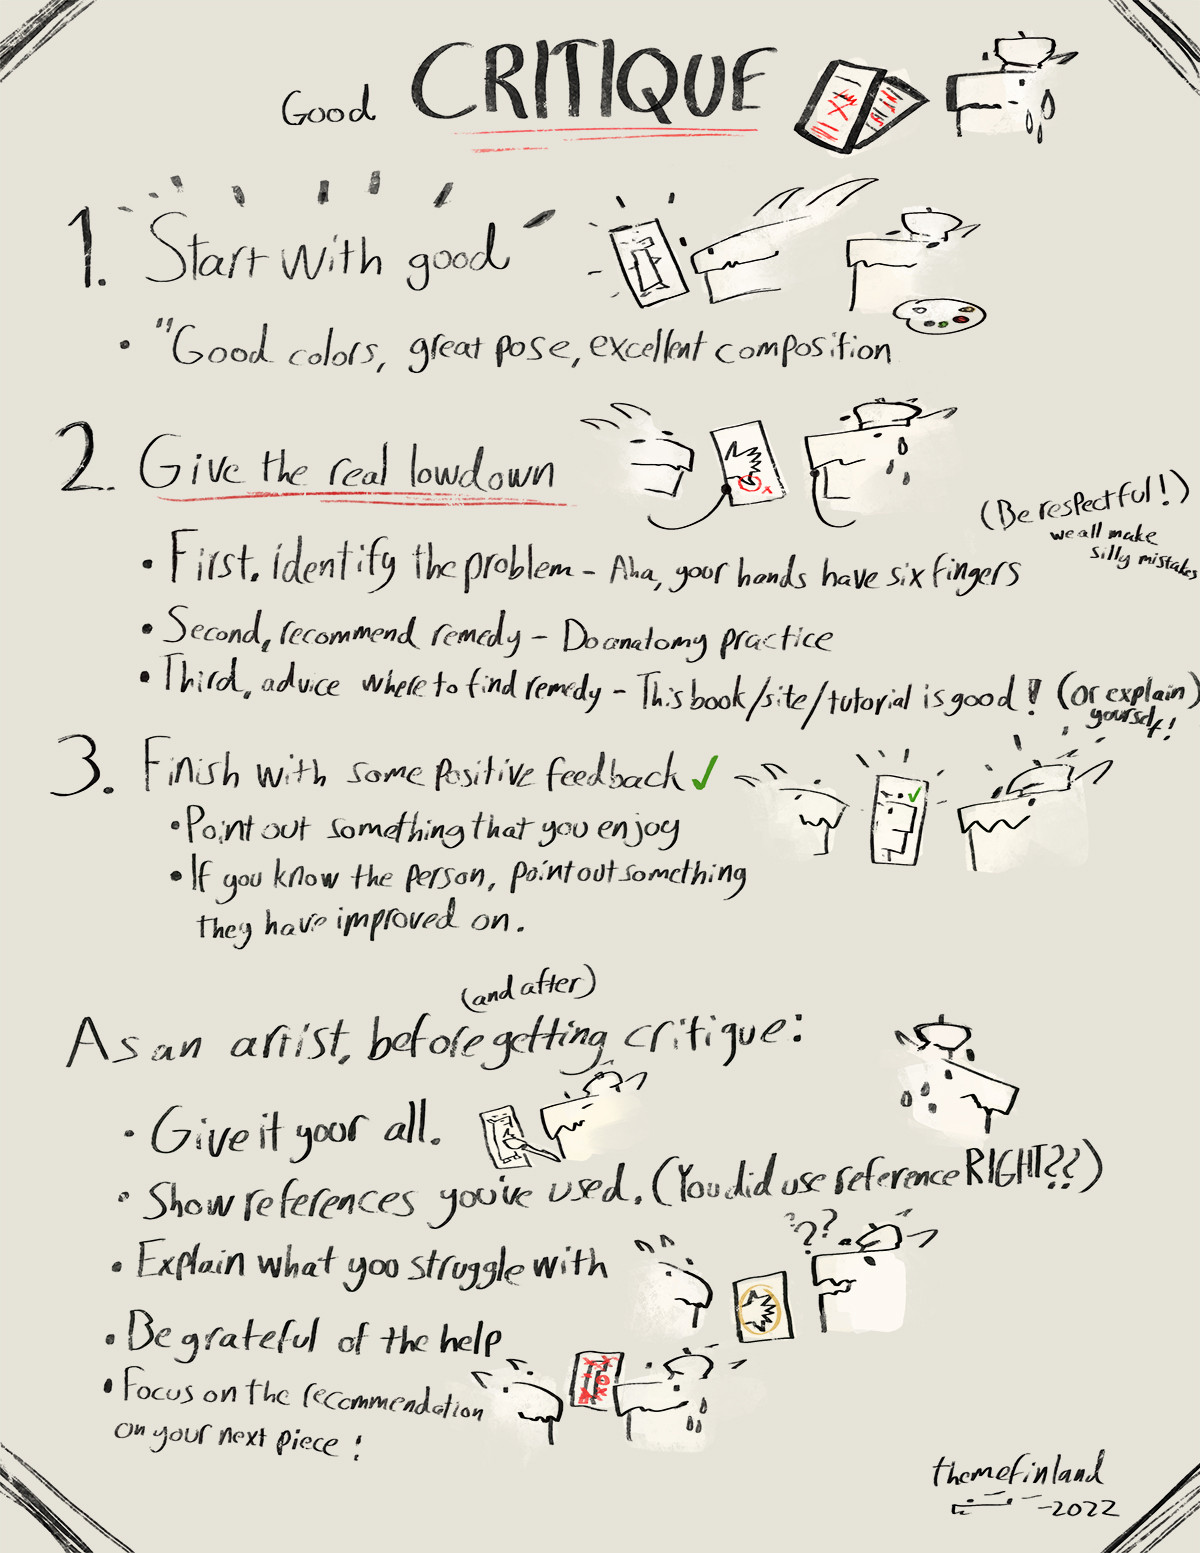 Good CRITIQUE
1. Start with good
• "Good colors, great pose, excellent composition
2. Give the real lowdown
(Be respectful!)
we all make
silly mistakes
• First, identify the problem - Aha, your hands have six fingers
• Second, recommend remedy - Do anatomy practice
• Third, advice where to find remedy - This book/site/tutorial is good! (Or explain)
yourself!
3. Finish with some positive feedback ✓
• Point out something that you enjoy
• If you know the person, point out something
they have improved on.
(and after)
As an artist, before getting critique:
• Give it your all.
• Show references you've used. (You did use reference RIGHT??)
???
• Explain what you struggle with
• Be grateful of the help
• Focus on the recommendation
on your next piece!
themefinland
-2022